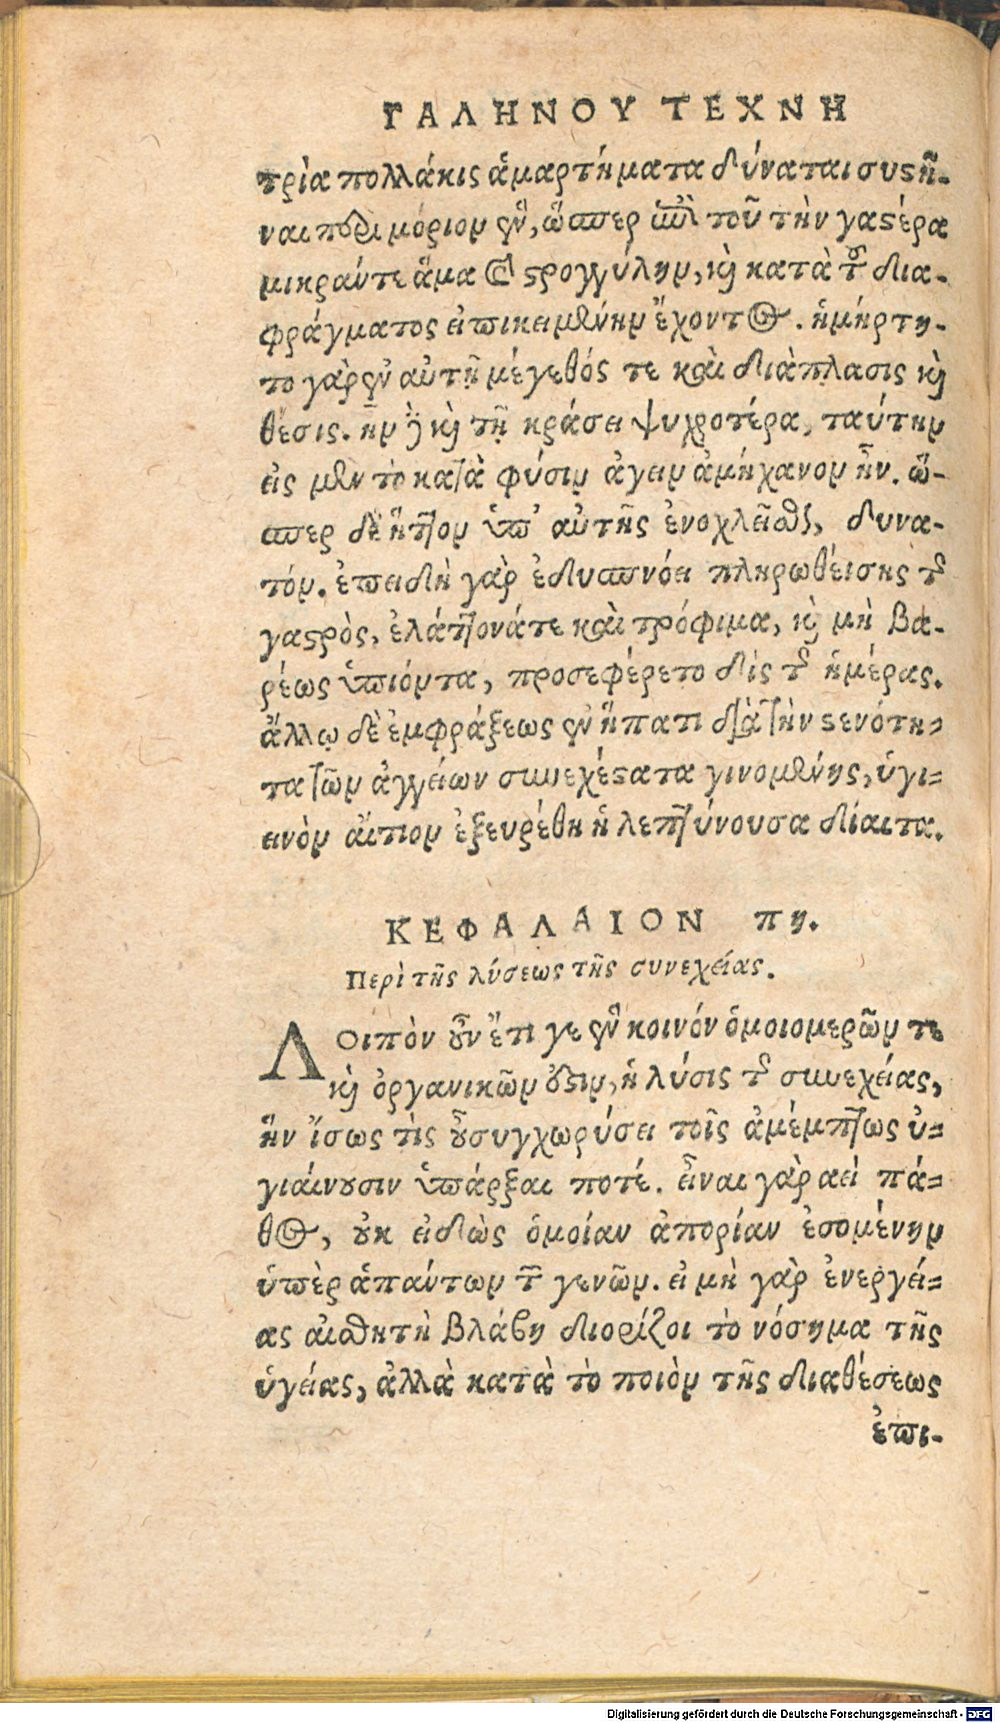 ΓΑΛΗΝΟΥ ΤΕΧΝΗ
τρία πολλάκις ἁμαρτήματα δύναται συστῆ-
ναι περὶ μόριον ἓν, ὥσπερ ἐπὶ τοῦ τὴν γαστέρα
μικράντε ἅμα καὶ στρογγύλην, καὶ κατὰ τοῦ δια-
φράγματος ἐπικειμένην ἔχοντος. ἡμάρτη-
το γὰρ ἐν αὐτῇ μέγεθός τε καὶ διάπλασις καὶ
θέσις. ἦν δὲ καὶ τῇ κράσει ψυχροτέρα, ταύτην
εἰς μὲν τὸ κατὰ φύσιν ἄγειν ἀμήχανον ἦν. ὥ-
σπερ δὲ ἧττον ὑπ' αὐτῆς ἐνοχλεῖσθαι, δυνα-
τόν. ἐπειδὴ γὰρ ἐδυσπνόει πληρωθείσης τῆς
γαστρὸς, ἐλάττονάτε καὶ τρόφιμα, καὶ μὴ βα-
ρέως ὑπιόντα, προσεφέρετο δὶς τῆς ἡμέρας.
ἄλλῳ δὲ ἐμφράξεως ἐν ἥπατι διὰ τὴν στενότη-
τα τῶν ἀγγείων συνεχέστατα γινομένης, ὑγι-
εινὸν αἴτιον ἐξευρέθη ἡ λεπτύνουσα δίαιτα.
ΚΕΦΑΛΑΙΟΝ πη.
Περὶ τῆς λύσεως τῆς συνεχείας.
ΛΟιπὸν οὖν ἔτι γε ἓν κοινόν ὁμοιομερῶν τε
καὶ ὀργανικῶν οὖσιν, ἡ λύσις τῆς συνεχείας,
ἣν ἴσως τὶς οὐ συγχωρήσει τοῖς ἀμέμπτως ὑ-
γιαίνουσιν ὑπάρξαι ποτέ. εἶναι γὰρ αεὶ πά-
θος, οὐκ εἰδὼς ὁμοίαν ἀπορίαν ἐσομένην
ὑπὲρ ἁπάντων τῶν γενῶν. εἰ μὴ γὰρ ἐνεργεί-
ας αἰσθητὴ βλάβη διορίζοι τὸ νόσημα τῆς
ὑγείας, ἀλλὰ κατὰ τὸ ποιὸν τῆς διαθέσεως
ἐπι-
Digitalisierung gefördert durch die Deutsche Forschungsgemeinschaft - DFG